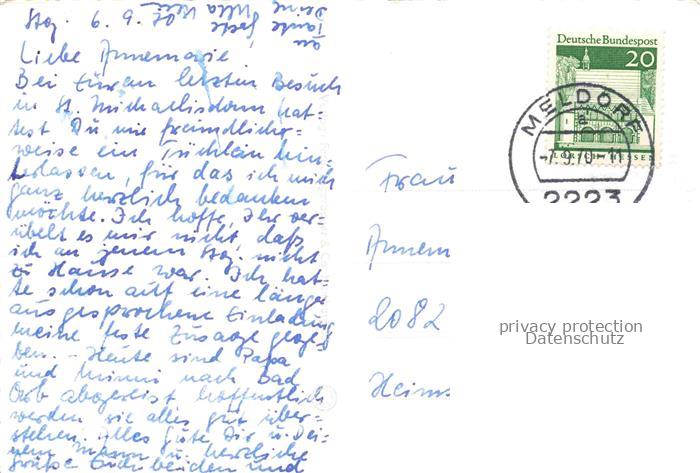 Stg. 6. 9. 70
Liebe Annemarie
Bei Eurem letzten Besuch
in St. Michaelisdonn hat-
test Du mir freundlicher-
weise ein Tüchlein hin-
terlassen, für das ich mich
ganz herzlich bedanken
möchte. Ich hoffe, Ihr ver-
übelt es mir nicht, daß
ich an jenem Stg. nicht
zu Hause war. Ich hat-
te schon auf eine länger
ausgesprochene Einladung
meine feste Zusage gege-
ben. - Heute sind Papa
und nach Bad
Orb abgereist hoffentlich
werden sie alles gut über-
stehen. Alles Gute Dir u. Dei-
nem Mann u. herzliche
Grüße Euch beiden und
an
Deine
Deutsche Bundespost
20
MELDORF
a
-7.9.70-11
2223
LORSCH HESSEN
Frau
Annem
2082
privacy protection
Datenschutz